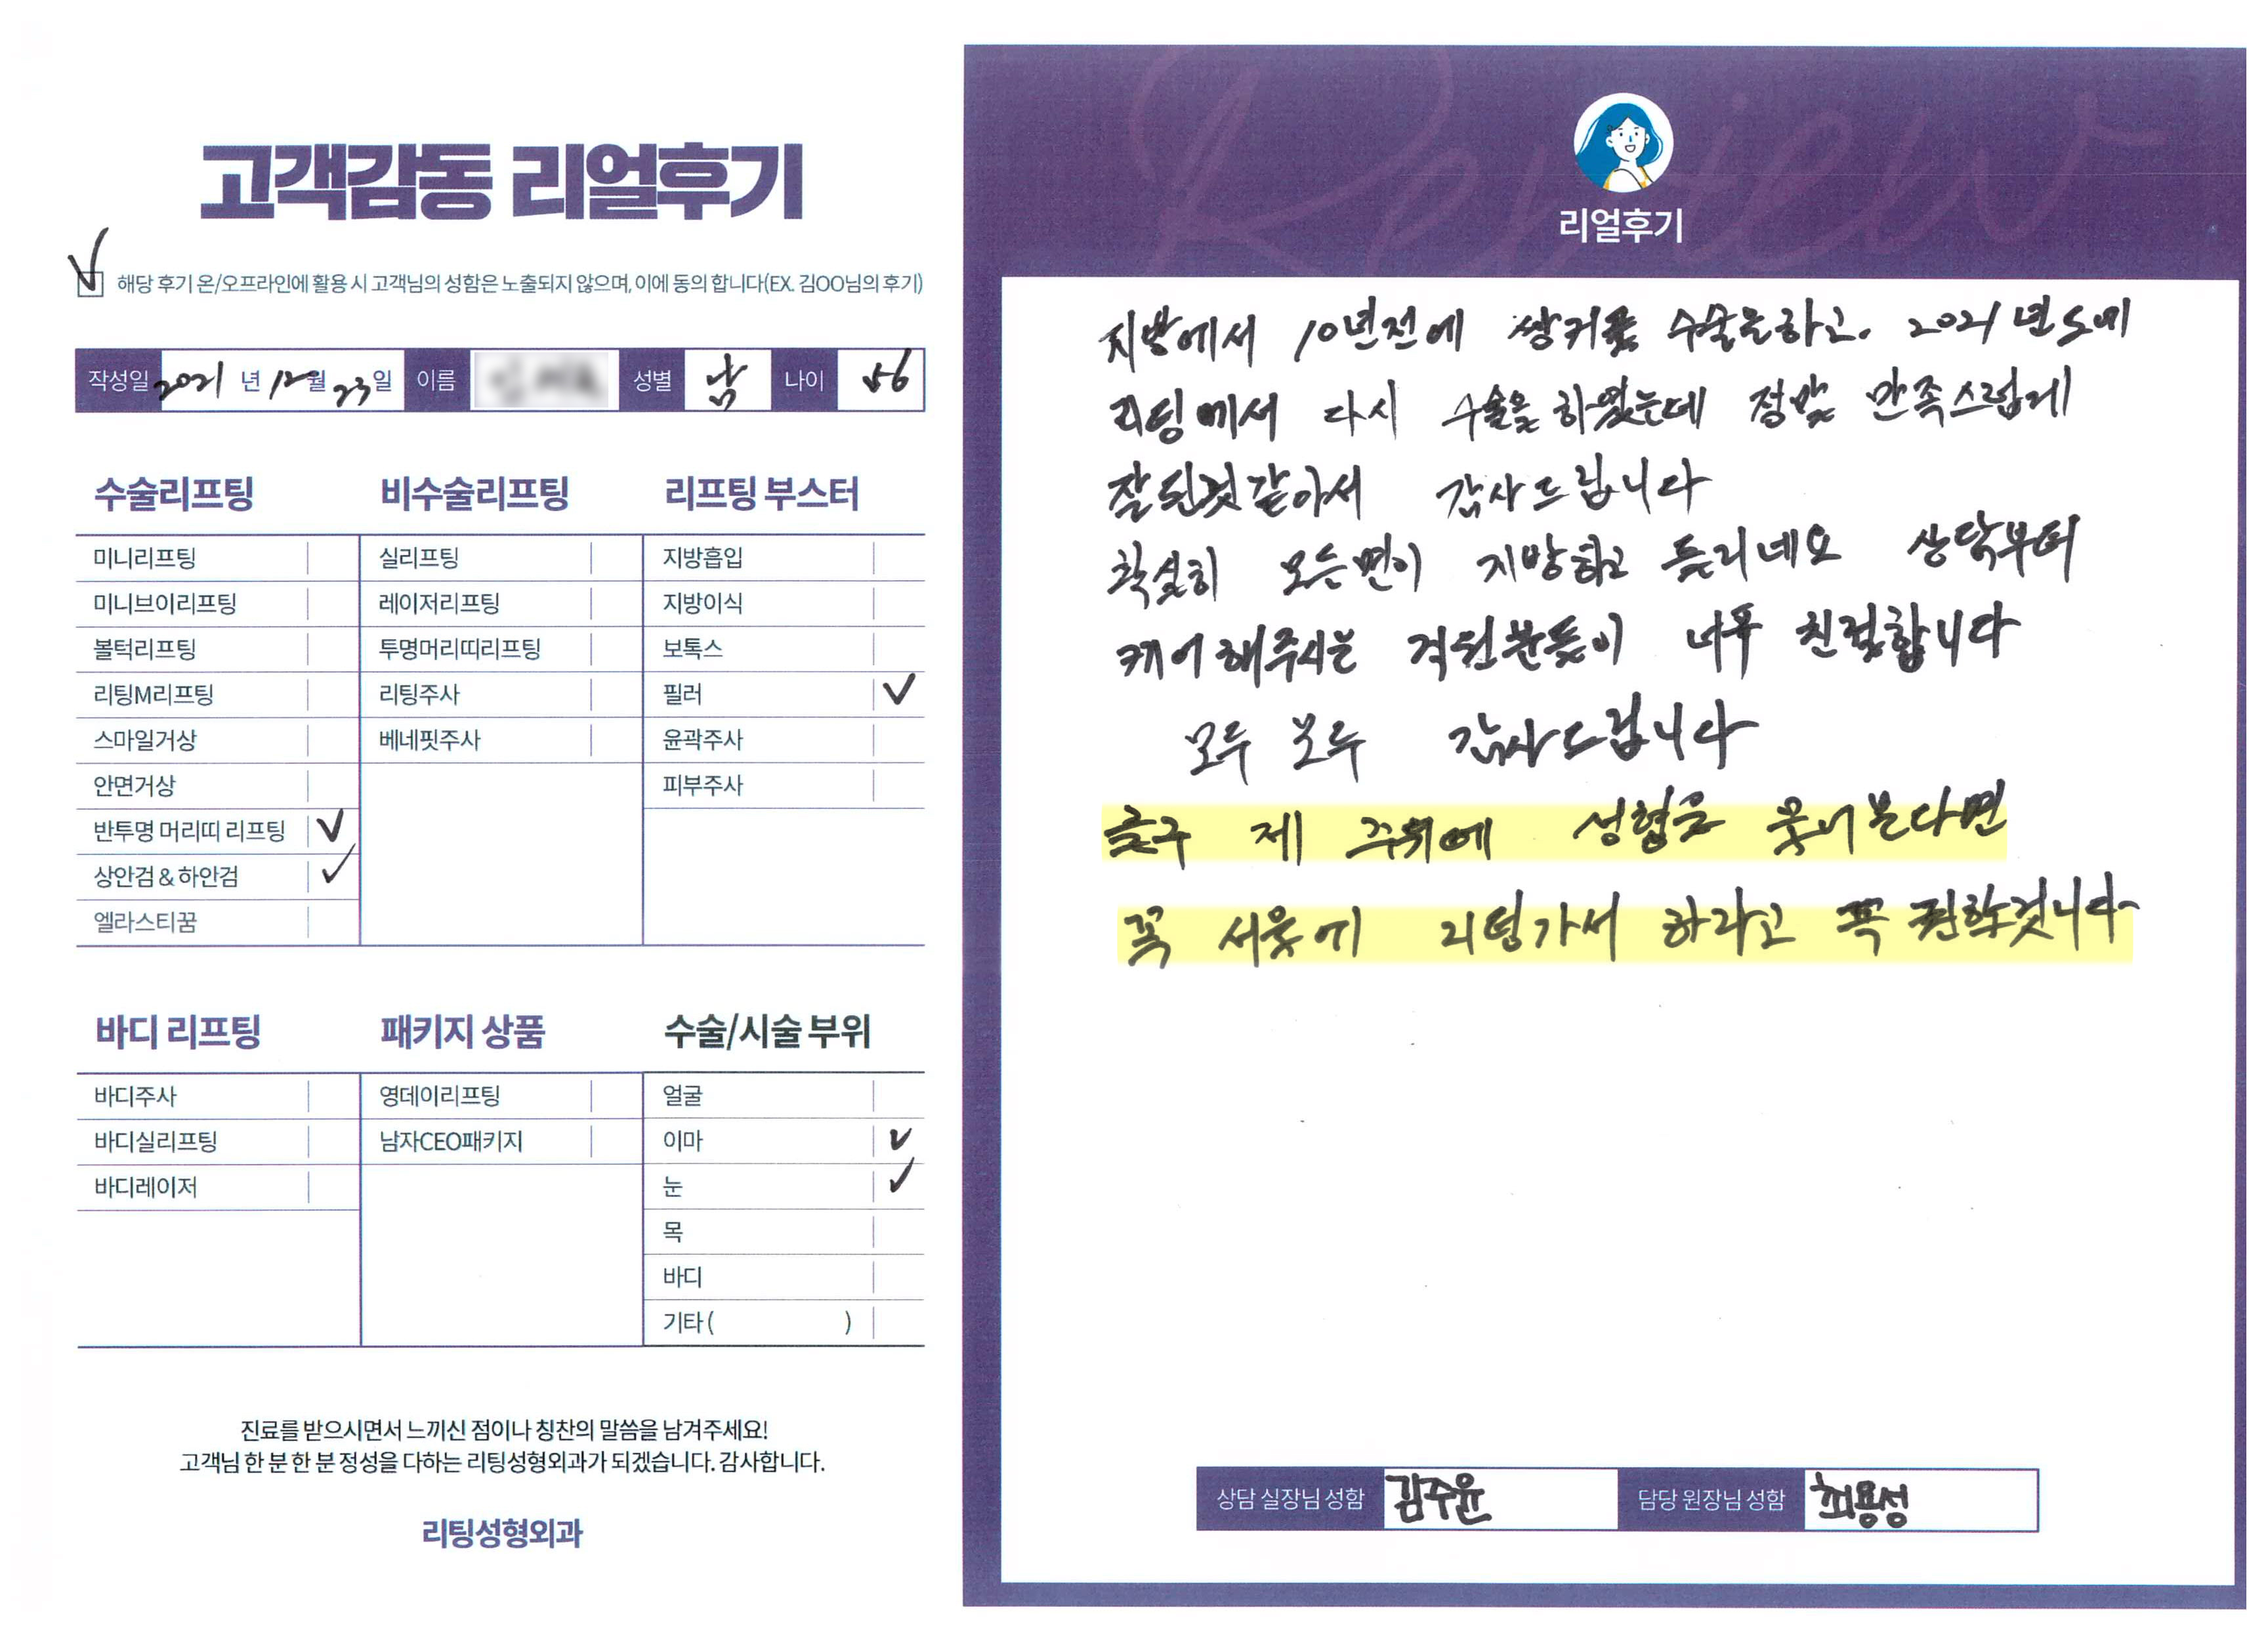 고객감동 리얼후기
해당 후기 온/오프라인에 활용 시 고객님의 성함은 노출되지 않으며, 이에 동의 합니다(EX. 김OO님의 후기)
작성일 2021 년 12월 23일 이름 성별 남 나이 56
수술리프팅
미니리프팅
미니브이리프팅
볼턱리프팅
리팅M리프팅
스마일거상
안면거상
반투명 머리띠 리프팅 ✓
상안검 & 하안검 ✓
엘라스티꿈
비수술리프팅
실리프팅
레이저리프팅
투명머리띠리프팅
리팅주사
베네핏주사
리프팅 부스터
지방흡입
지방이식
보톡스
필러 ✓
윤곽주사
피부주사
바디 리프팅
바디주사
바디실리프팅
바디레이저
패키지 상품
영데이리프팅
남자CEO패키지
수술/시술 부위
얼굴
이마 ✓
눈 ✓
목
바디
기타 ( )
진료를 받으시면서 느끼신 점이나 칭찬의 말씀을 남겨주세요!
고객님 한 분 한 분 정성을 다하는 리팅성형외과가 되겠습니다. 감사합니다.
리팅성형외과
Review
리얼후기
지방에서 10년전에 쌍커풀 수술을하고. 2021년도에
리팅에서 다시 수술을 하였는데 정말 만족스럽게
잘된것같아서 감사드립니다
확실히 모든면이 지방하고 틀리네요 상담부터
케어해주시는 직원분들이 너무 친절합니다
모두 모두 감사드립니다
제 주위에 성형을 물어본다면
꼭 서울에 리팅가서 하라고 꼭 권할것입니다
상담 실장님 성함 김주윤 담당 원장님 성함 최용성